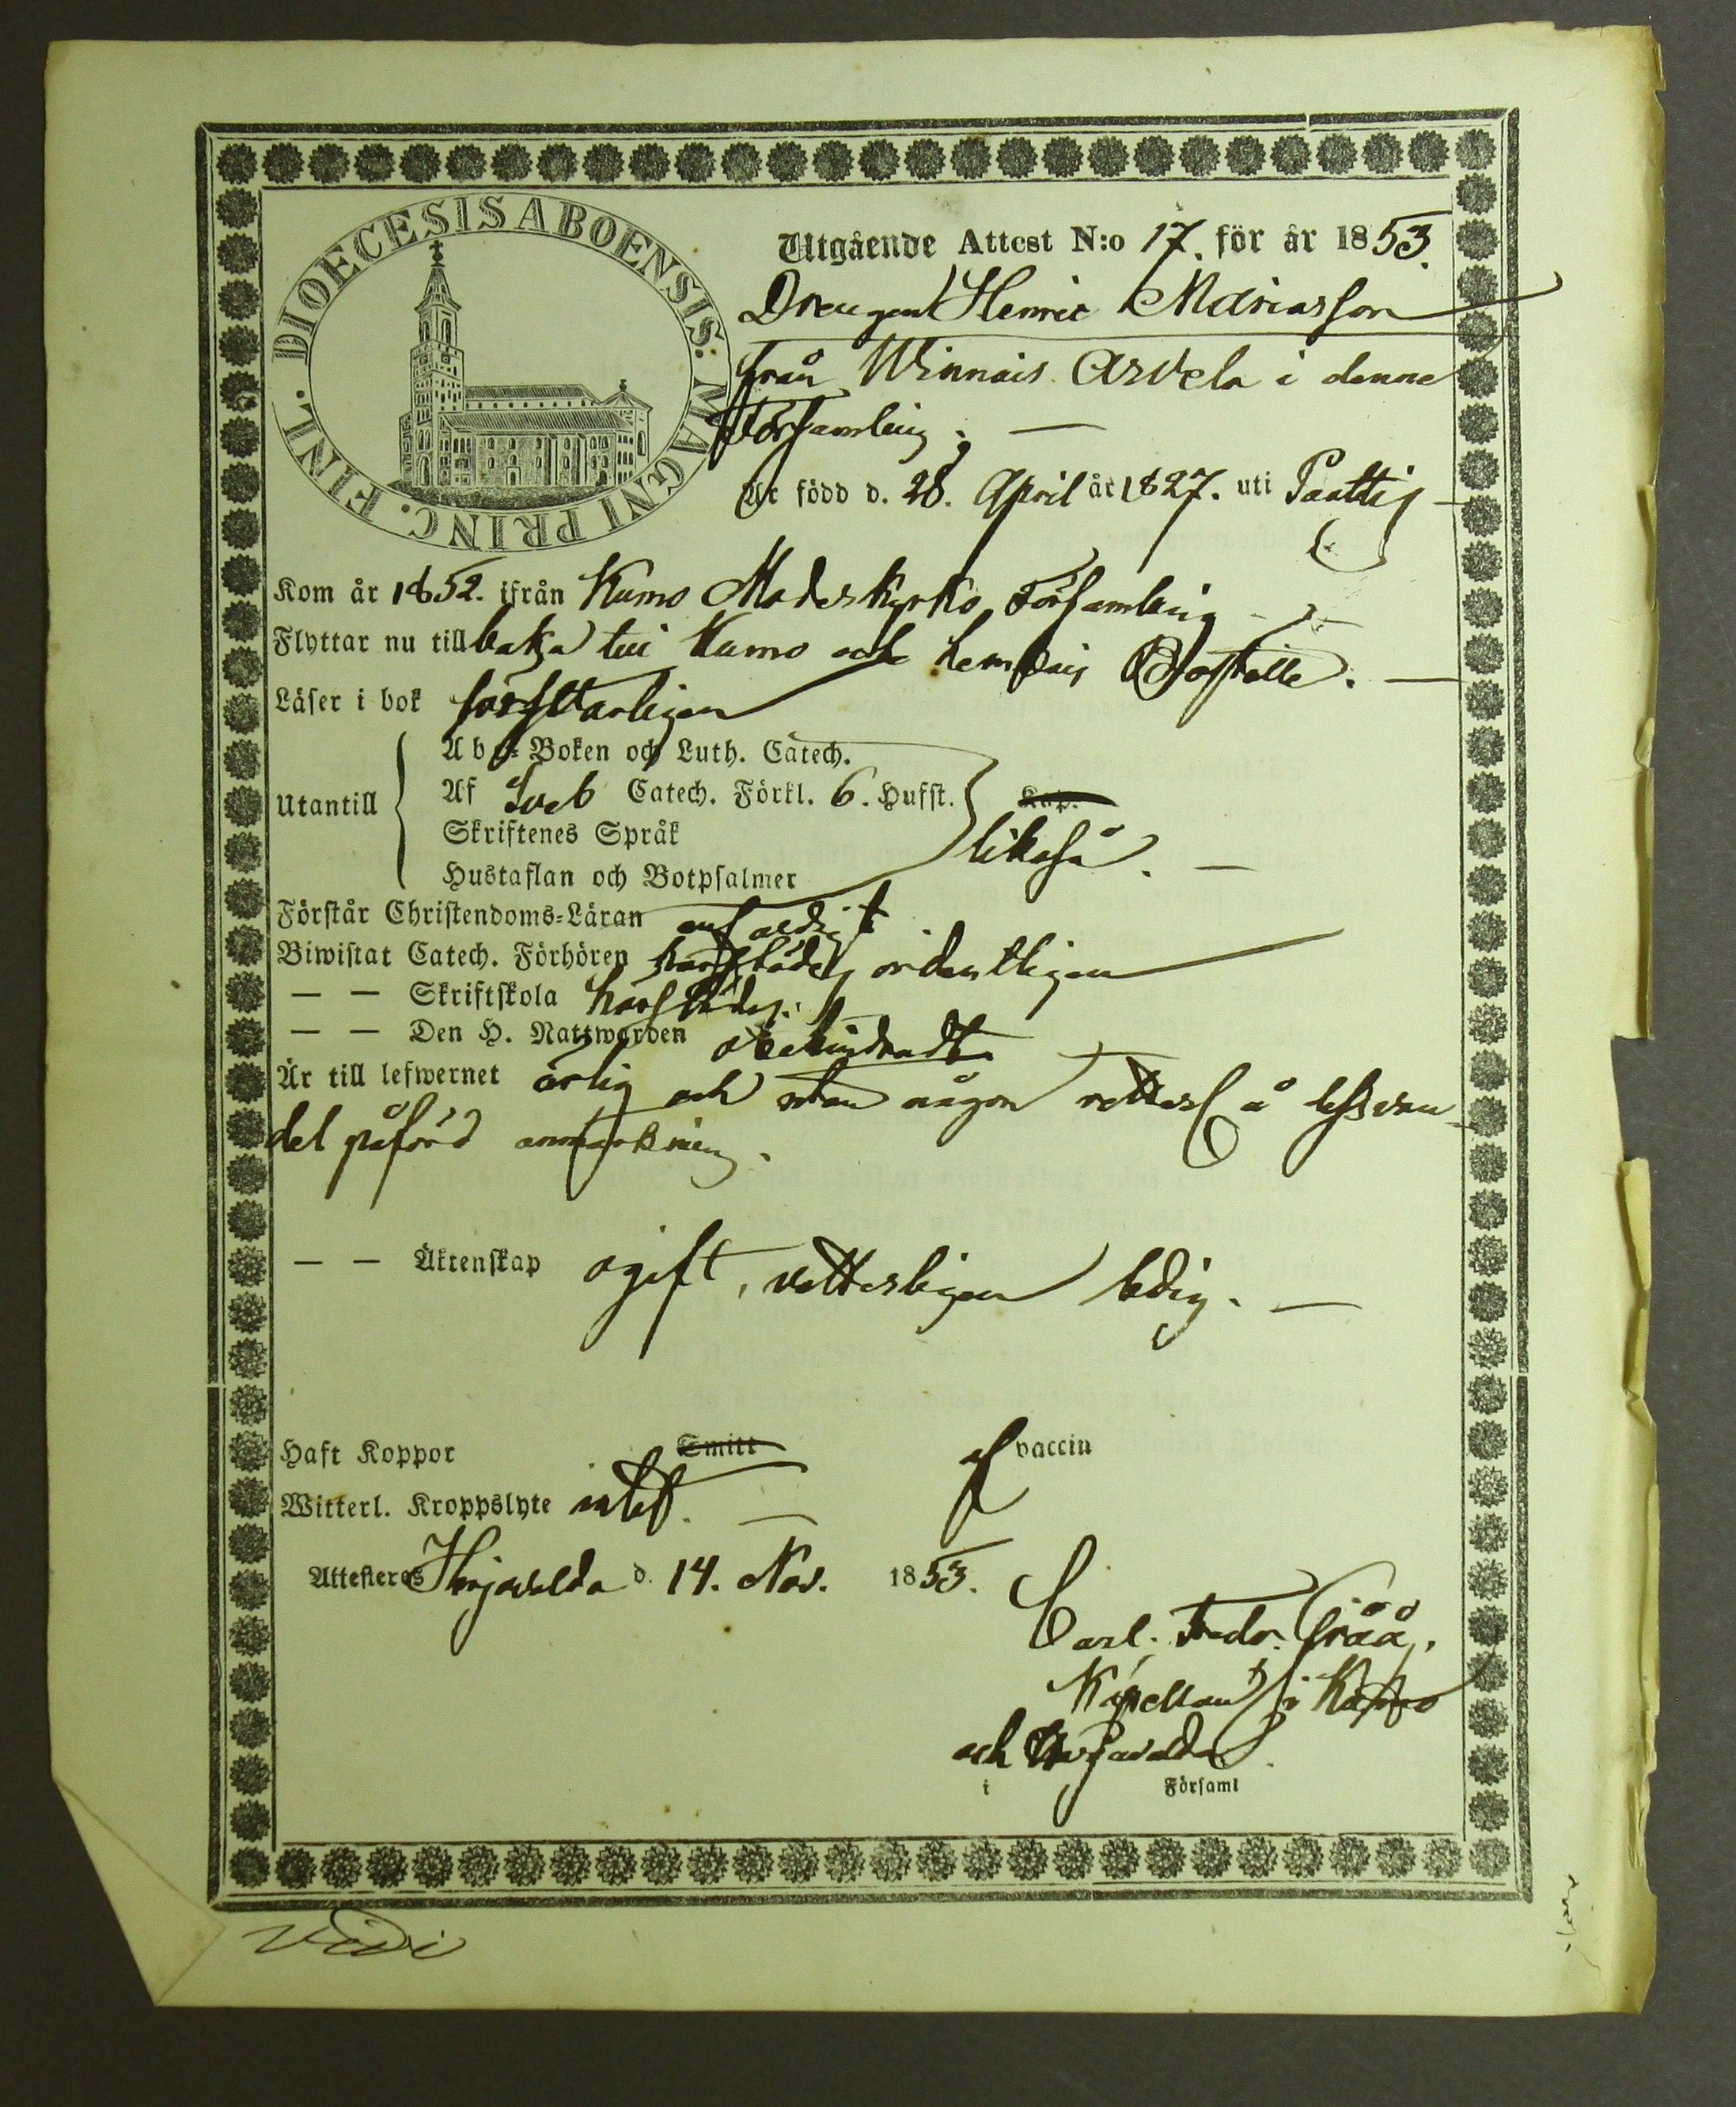 DIOECESIS ABOENSIS. MAGNI PRINC. FINL.
Utgående Attest N:o 17. för år 1853.
Drengen Henric Mariasson
från Winnais Arvela i denne
Församling.
Är född d. 28. April år 1827. uti Paattis
Kom år 1852. ifrån Kumo Moderkyrko Församling
Flyttar nu tillbaka till Kumo och Boställe.
Läser i bok försvarligen
Utantill
Abc-Boken och Luth. Catech.
Af Sveb Catech. Förkl. 6. Hufst. Kap.
Skriftenes Språk
likaså.
Hustaflan och Botpsalmer
Förstår Christendoms-Läran enfaldigt
Biwistat Catech. Förhören härstädes ordentligen
— — Skriftskola härstädes.
— — Den H. Nattwarden obehindradt
Är till lefwernet ärlig och utan någon vetterl å lefvern
del påförd anmärkning.
— — Äktenskap ogift, vetterligen ledig.
Haft Koppor Smitt af vaccin
Witterl. Kroppslyte intet.
Attesteras Harjavalda d. 14. Nov. 1853.
Carl. Fredr.
Kapellan i Kumo
och Harjavalda
i Församl
Vidi